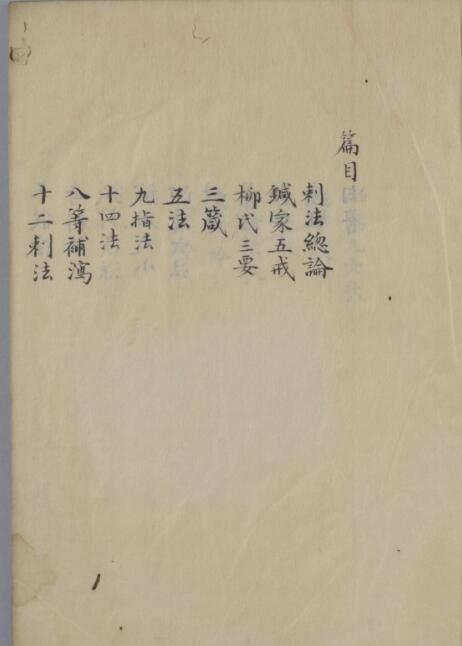 篇目
刺法總論
鍼家五戒
柳氏三要
三箴
五法
九指法
十四法
八等補瀉
十二刺法